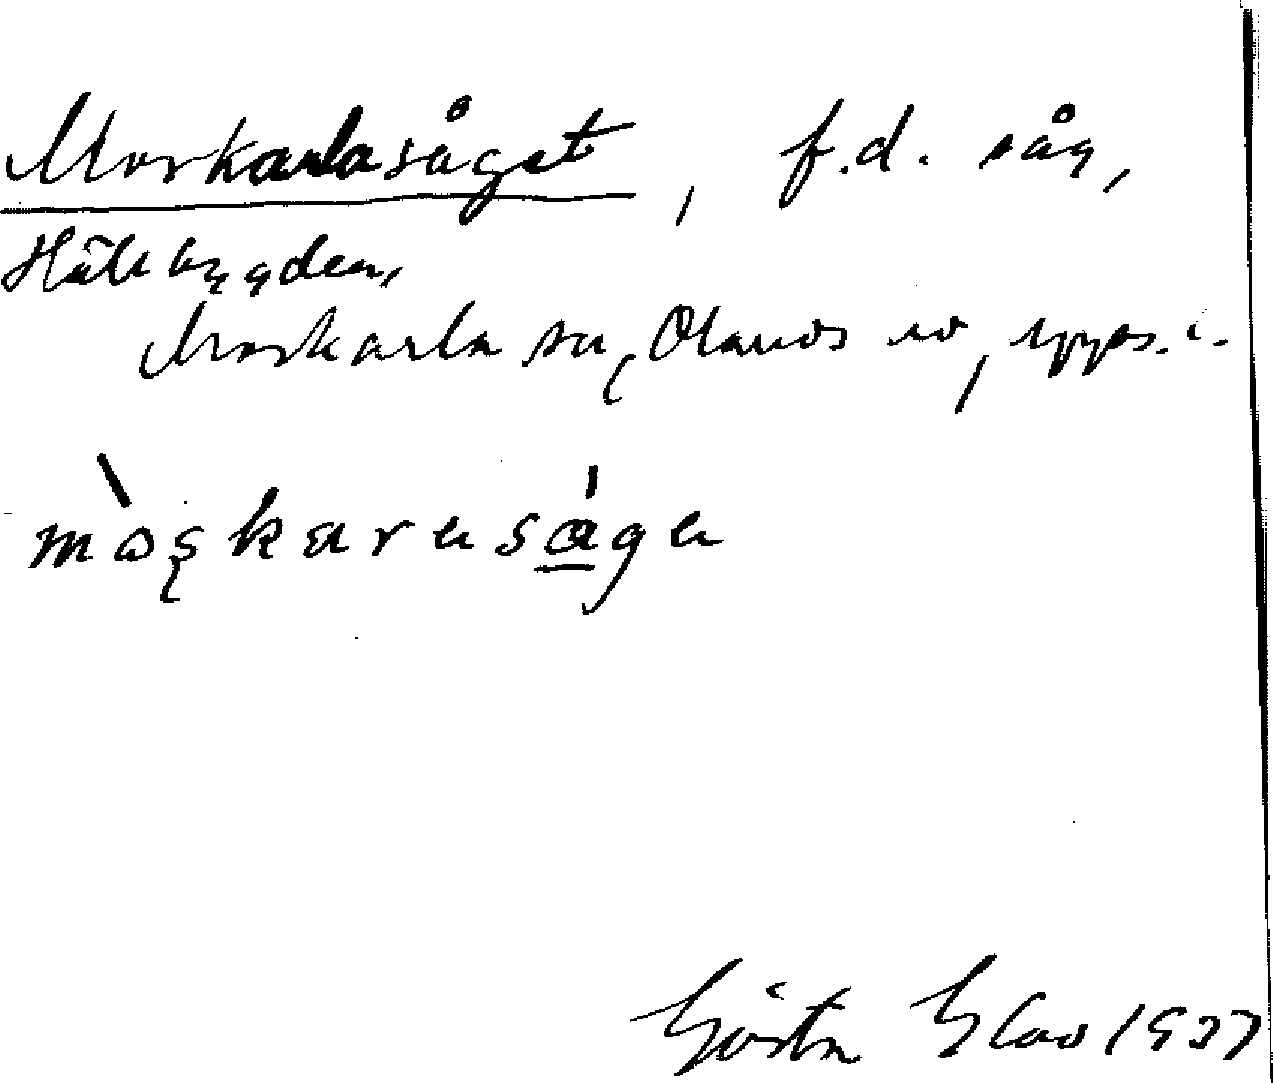 Morkarlasåget, f.d. såg,
Hålebygden,
Morkarla sn, Olands hd, Upps. l.
mòṣkarasåga
Gösta 1937